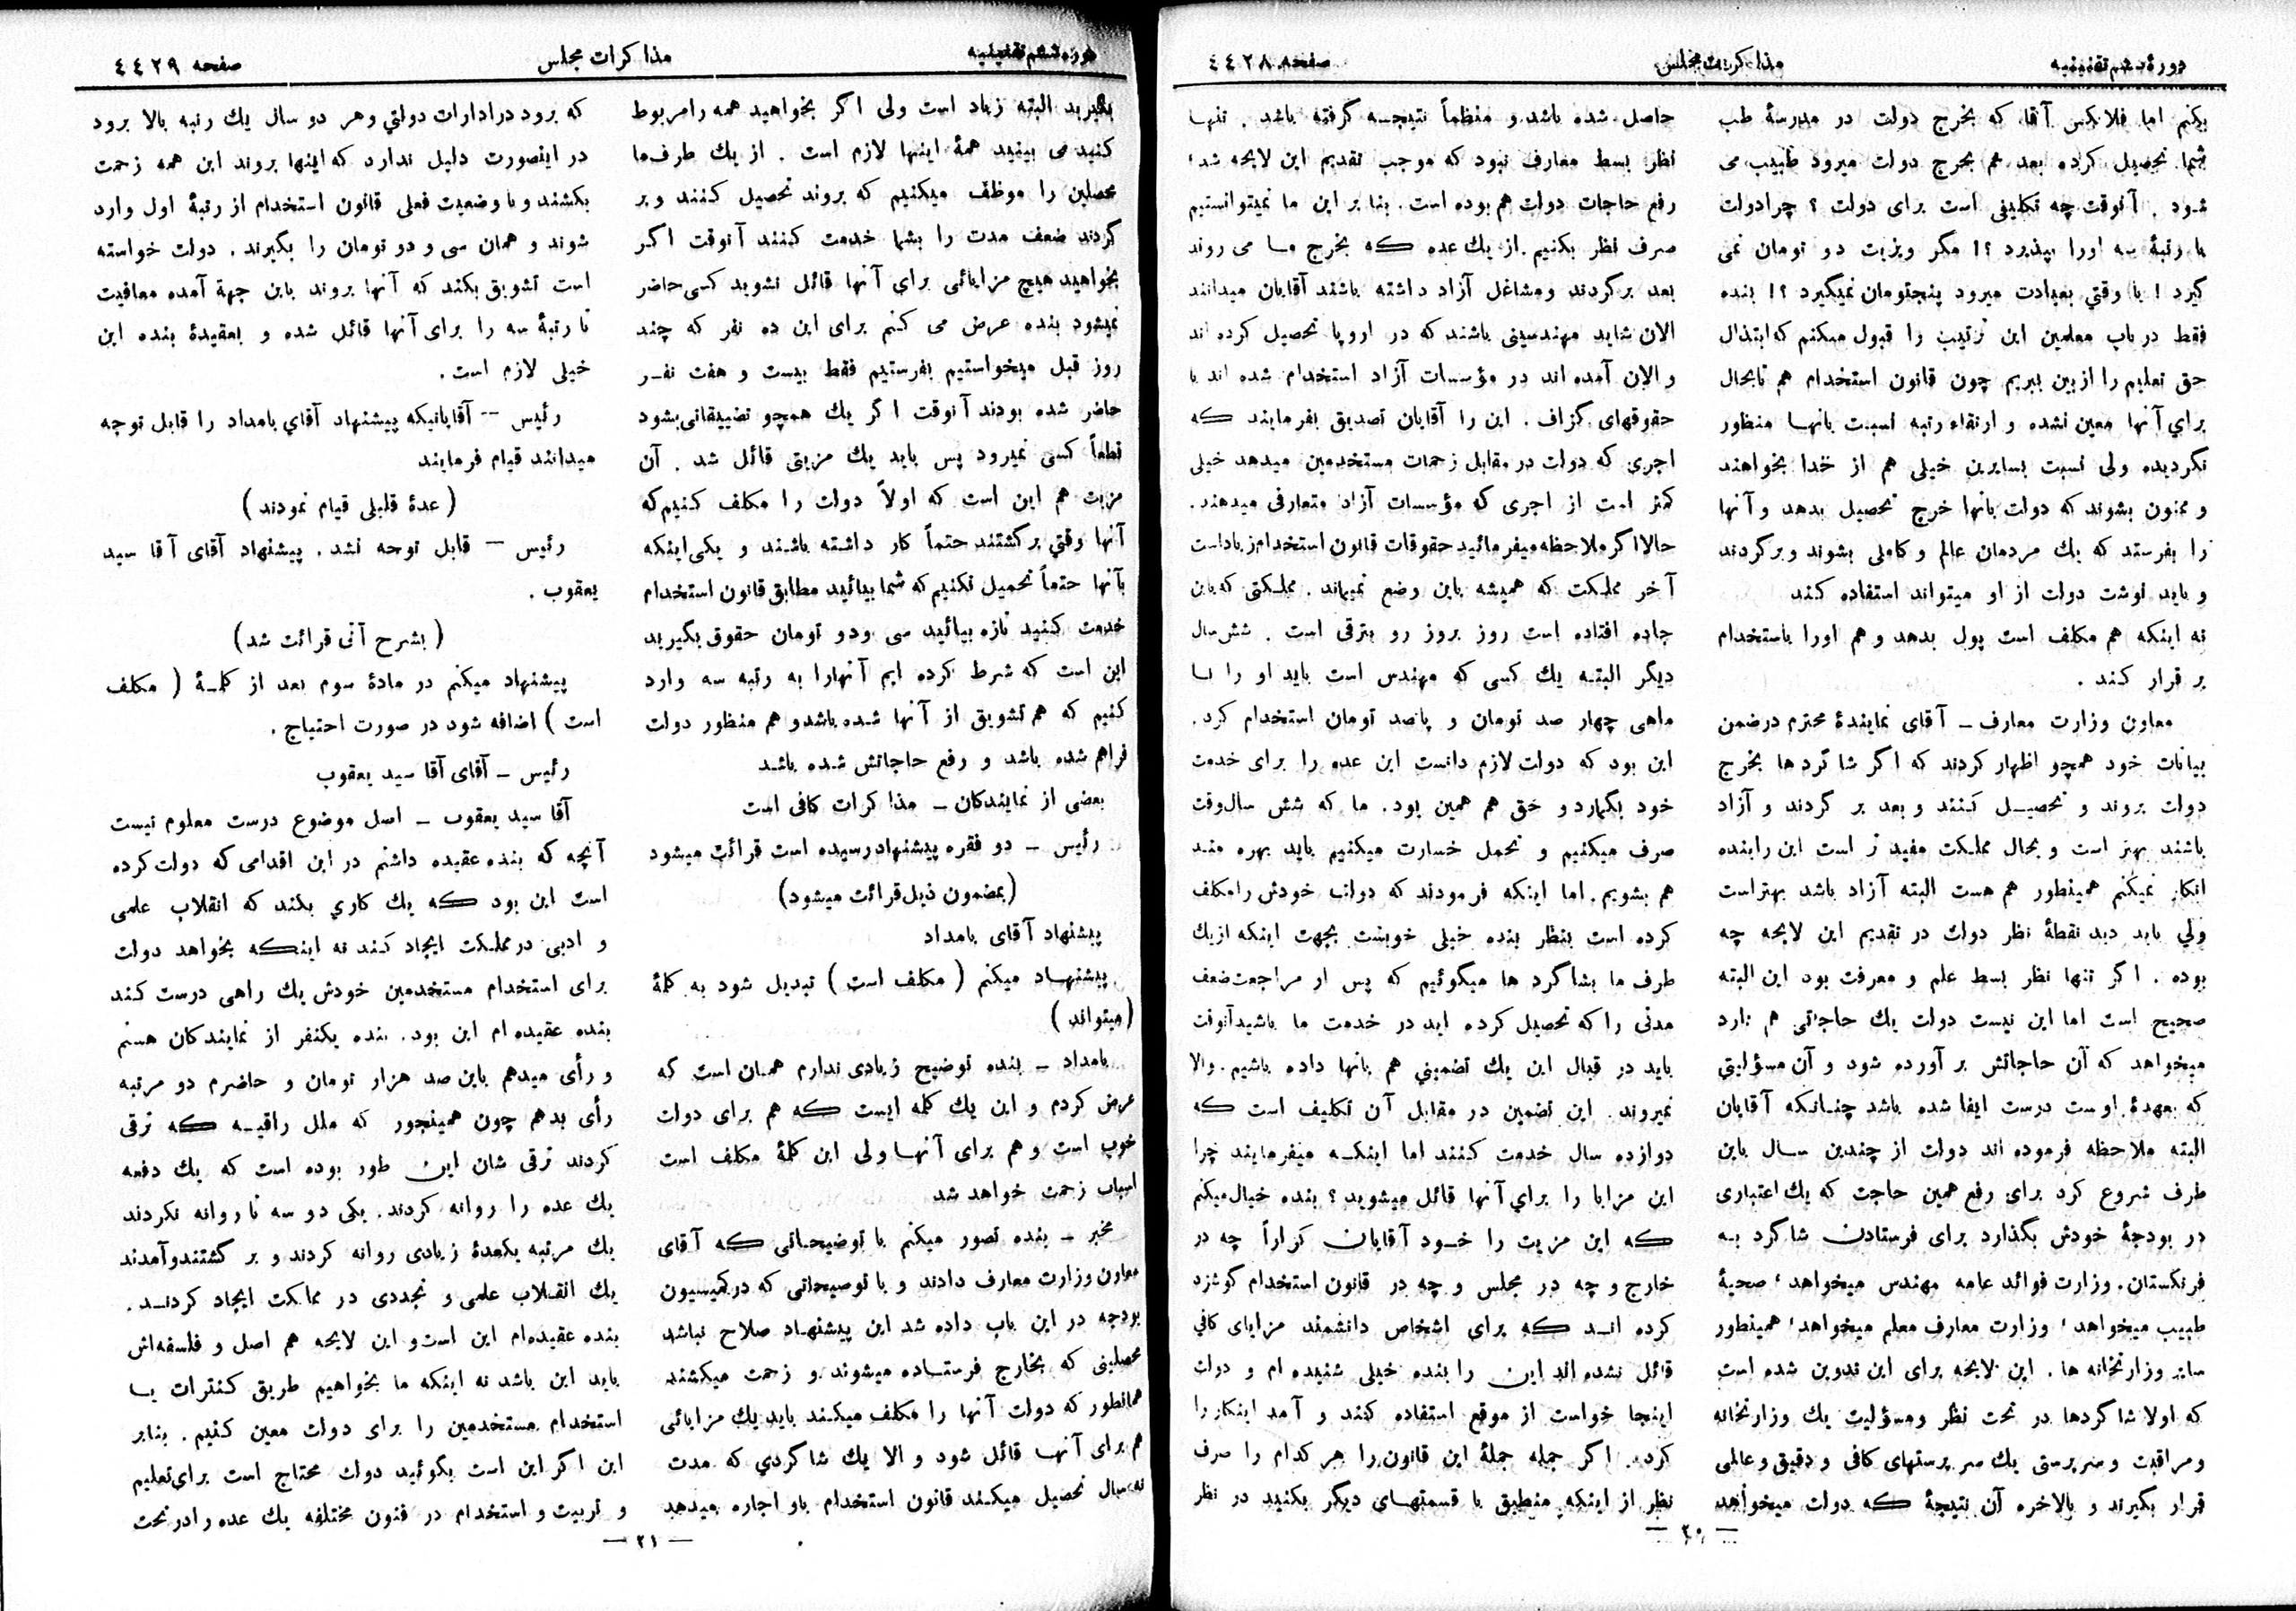 دورهٔ ششم تقنینیه
مذاکرات مجلس
صفحه ۴۴۲۸
بکنم اما فلانکس آقا که بخرج دولت در مدرسهٔ طب
شما تحصیل کرده بعد هم بخرج دولت میرود طبیب می
شود . آنوقت چه تکلیفی است برای دولت ؟ چرا دولت
با رتبهٔ سه اورا بپذیرد ؟! مگر ویزیت دو تومان نمی
گیرد ! یا وقتي بعیادت میرود پنجتومان نمیگیرد ؟! بنده
فقط در باب معلمین این ترتیب را قبول میکنم که ابتذال
حق تعلیم را از بین ببریم چون قانون استخدام هم تابحال
براي آنها معین نشده و ارتقاء رتبه نسبت بانهـا منظور
نگردیده ولی نسبت بسایرین خیلی هم از خدا بخواهند
و ممنون بشوند که دولت بانها خرج تحصیل بدهد و آنها
را بفرستد که یك مردمان عالم و کاملی بشوند و برگردند
و باید نوشت دولت از او میتواند استفاده کند
نه اینکه هم مکلف است پول بدهد و هم اورا باستخدام
بر قرار کند .
معاون وزارت معارف ـ آقای نمایندهٔ محترم در ضمن
بیانات خود همچو اظهار کردند که اگر شاگرد ها بخرج
دولت بروند و تحصیـل کنند و بعد بر گردند و آزاد
باشند بهتر است و بحال مملکت مفید تر است این را بنده
انکار نمیکنم همینطور هم هست البته آزاد باشد بهتر است
ولي باید دید نقطهٔ نظر دولت در تقدیم این لایحه چه
بوده . اگر تنها نظر بسط علم و معرفت بود این البته
صحیح است اما این نیست دولت یك حاجاتی هم دارد
میخواهد که آن حاجاتش بر آورده شود و آن مسؤلیتي
که بعهدهٔ اوست درست ایفا شده باشد چنـانکه آقایان
البته ملاحظه فرموده اند دولت از چندین سـال باین
طرف شروع کرد برای رفع همین حاجت که یك اعتباری
در بودجهٔ خودش بگذارد برای فرستادن شاگرد بـه
فرنگستان . وزارت فوائد عامه مهندس میخواهد ؛ صحیهٔ
طبیب میخواهد ؛ وزارت معارف معلم میخواهد ؛ همینطور
سایر وزارتخانه ها . این لایحه برای این تدوین شده است
که اولا شاگردها در تحت نظر و مسؤلیت یك وزارتخانه
و مراقبت و سرپرستی یك سر پرستهای کافی و دقیق و عالمی
قرار بگیرند و بالاخره آن نتیجهٔ کـه دولت میخواهد
حاصل شده باشد و منظماً نتیجـه گرفته باشد . تنهـا
نظر بسط معارف نبود که موجب تقدیم این لایحه شد ؛
رفع حاجات دولت هم بوده است . بنا بر این ما نمیتوانستیم
صرف نظر بکنیم . از یك عده کـه بخرج مـا می روند
بعد برگردند و مشاغل آزاد داشته باشند آقایان میدانند
الان شاید مهندسینی باشند که در اروپا تحصیل کرده اند
و الان آمده اند در مؤسسات آزاد استخدام شده اند با
حقوقهای گزاف . این را آقایان تصدیق بفرمایند کـه
اجری که دولت در مقابل زحمات مستخدمین میدهد خیلی
کمتر است از اجری که مؤسسات آزاد متعارفی میدهند .
حالا اگر ملاحظه میفرمائید حقوقات قانون استخدام زیاد است
آخر مملکت که همیشه باین وضع نمیماند . مملکتی که باین
جاده افتاده است روز بروز رو بترقی است . شش سال
دیگر البتـه یك کسی که مهندس است باید او را بـا
ماهی چهار صد تومان و پانصد تومان استخدام کرد .
این بود که دولت لازم دانست این عده را برای خدمت
خود بگمارد و حق هم همین بود . ما که شش سال وقت
صرف میکنیم و تحمل خسارت میکنیم باید بهره منـد
هم بشویم . اما اینکه فرمودند که دولت خودش را مکلف
کرده است بنظر بنده خیلی خوبست بجهت اینکه از یك
طرف ما بشاگرد ها میگوئیم که پس از مراجعت ضعف
مدتی را که تحصیل کرده اید در خدمت ما باشید آنوقت
باید در قبال این یك تضمیني هم بانها داده باشیم . والا
نمیروند . این تضمین در مقابل آن تکلیف است کـه
دوازده سال خدمت کنند اما اینکـه میفرمایند چرا
این مزایا را براي آنها قائل میشوید ؟ بنده خیال میکنم
کـه این مزیت را خـود آقایان کراراً چه در
خارج و چه در مجلس و چه در قانون استخدام گوشزد
کرده انـد کـه برای اشخاص دانشمند مزایای کافي
قائل نشده اند این را بنده خیلی شنیده ام و دولت
اینجا خواست از موقع استفاده کند و آمد اینکار را
کرد . اگر جمله جملهٔ این قانون را هر کدام را صرف
نظر از اینکه منطبق با قسمتهـای دیگر بکنید در نظر
— ۲۰ —
دوره ششم تقنینیه
مذاکرات مجلس
صفحه ۴۴۲۹
بگیرید البته زیاد است ولی اگر بخواهید همه را مربوط
کنید می بینید همهٔ اینها لازم است . از یك طرف ما
محصلین را موظف میکنیم که بروند تحصیل کـنند و بر
گردند ضعف مدت را بشما خدمت کنند آنوقت اگـر
بخواهید هیچ مزایائی برای آنها قائل نشوید کسی حاضر
نمیشود بنده عرض می کنم برای این ده نفر که چند
روز قبل میخواستیم بفرستیم فقط بیست و هفت نفـر
حاضر شده بودند آنوقت اگر یك همچو تضییقاتی بشود
قطعاً کسی نمیرود پس باید یك مزیتی قائل شد . آن
مزیت هم این است که اولاً دولت را مکلف کنیم که
آنها وقتي برگشتند حتماً کار داشته باشند و یکی اینکه
بآنها حتماً تحمیل نکنیم که شما بیائید مطابق قانون استخدام
خدمت کنید تازه بیائید سی و دو تومان حقوق بگیرید
این است که شرط کرده ایم آنهارا به رتبه سه وارد
کنیم که هم تشویق از آنها شده باشد و هم منظور دولت
فراهم شده باشد و رفع حاجاتش شده باشد
بعضی از نمایندگان ـ مذاکرات کافی است
رئیس ـ دو فقره پیشنهاد رسیده است قرائت میشود
(بمضمون ذیل قرائت میشود)
پیشنهاد آقای بامداد
پیشنهـاد میکنم ( مکلف است ) تبدیل شود به کلمهٔ
( میتواند )
بامداد ـ بنده توضیح زیادی ندارم همـان است که
عرض کردم و این یك کلمه ایست کـه هم برای دولت
خوب است و هم برای آنهـا ولی این کلمهٔ مکلف است
اسباب زحمت خواهد شد
مخبر ـ بنده تصور میکنم با توضیحـاتی کـه آقای
معاون وزارت معارف دادند و با توضیحاتی که در کمیسیون
بودجه در این باب داده شد این پیشنهاد صلاح نباشد
محصلینی که بخارج فرستـاده میشوند و زحمت میکشند
همانطور که دولت آنها را مکلف میکند باید یك مزایائی
هم برای آنهـا قائل شود و الا یك شاگردي که مدت
نه سال تحصیل میکـند قانون استخدام باو اجازه میدهد
که برود در ادارات دولتي و هر دو سال یك رتبه بالا برود
در اینصورت دلیل ندارد که اینها بروند این همه زحمت
بکشند و با وضعیت فعلی قانون استخدام از رتبهٔ اول وارد
شوند و همان سی و دو تومان را بگیرند . دولت خواسته
است تشویق بکند که آنها بروند باین جهة آمده معافیت
تا رتبهٔ سه را برای آنها قائل شده و بعقیدهٔ بنده این
خیلی لازم است .
رئیس -- آقایانیکه پیشنهاد آقاي بامداد را قابل توجه
میدانند قیام فرمایند
( عدهٔ قلیلی قیام نمودند )
رئیس — قابل توجه نشد . پیشنهاد آقای آقا سید
یعقوب .
( بشرح آتی قرائت شد )
پیشنهاد میکنم در مادهٔ سوم بعد از کلمـهٔ ( مکلف
است ) اضافه شود در صورت احتیاج .
رئیس ـ آقای آقا سید یعقوب
آقا سید یعقوب ـ اصل موضوع درست معلوم نیست
آنچه که بنده عقیده داشتم در این اقدامی که دولت کرده
است این بود کـه یك کاري بکند که انقلاب علمی
و ادبی در مملکت ایجاد کند نه اینکـه بخواهد دولت
برای استخدام مستخدمین خودش یك راهی درست کند
بنده عقیده ام این بود . بنده یکنفر از نمایندگان هستم
و رأی میدهم باین صد هزار تومان و حاضرم دو مرتبه
رأی بدهم چون همینجور که ملل راقیـه کـه ترقی
کردند ترقی شان این طور بوده است که یك دفعه
یك عده را روانه کردند . یکی دو سه تا روانه نکردند
یك مرتبه یکعدهٔ زیادی روانه کردند و بر گشتند و آمدند
یك انقـلاب علمی و تجددی در مملکت ایجاد کردنـد .
بنده عقیده‌ام این است و این لایحه هم اصل و فلسفه‌اش
باید این باشد نه اینکه ما بخواهیم طریق کنترات یـا
استخدام مستخدمین را برای دولت معین کنیم . بنابر
این اگر این است بگوئید دولت محتاج است برای تعلیم
و تربیت و استخدام در فنون مختلفه یك عده را در تحت
— ۲۱ —